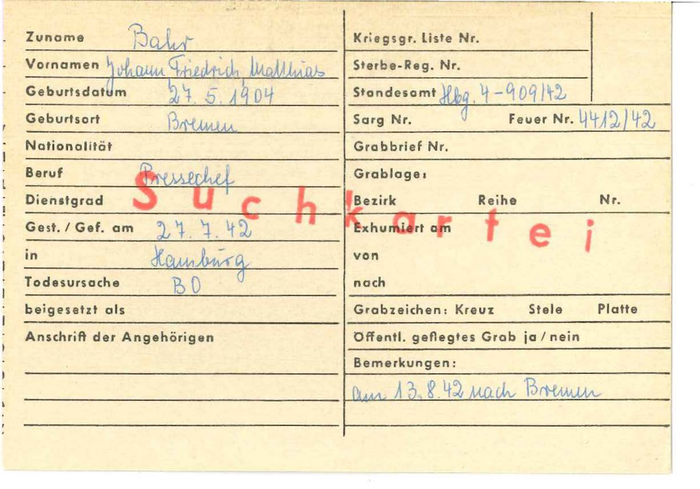 Zuname Bahr
Vornamen Johann Friedrich Matthias
Geburtsdatum 27.5.1904
Geburtsort Bremen
Nationalität
Beruf Pressechef
Dienstgrad
Gest./Gef. am 27.7.42
in Hamburg
Todesursache BO
beigesetzt als
Anschrift der Angehörigen
Kriegsgr. Liste Nr.
Sterbe-Reg. Nr.
Standesamt Hbg. 4-909/42
Sarg Nr. Feuer Nr. 4412/42
Grabbrief Nr.
Grablage:
Bezirk Reihe Nr.
Exhumiert am
von
nach
Grabzeichen: Kreuz Stele Platte
Öffentl. geflegtes Grab ja/nein
Bemerkungen:
am 13.8.42 nach Bremen
Suchkartei